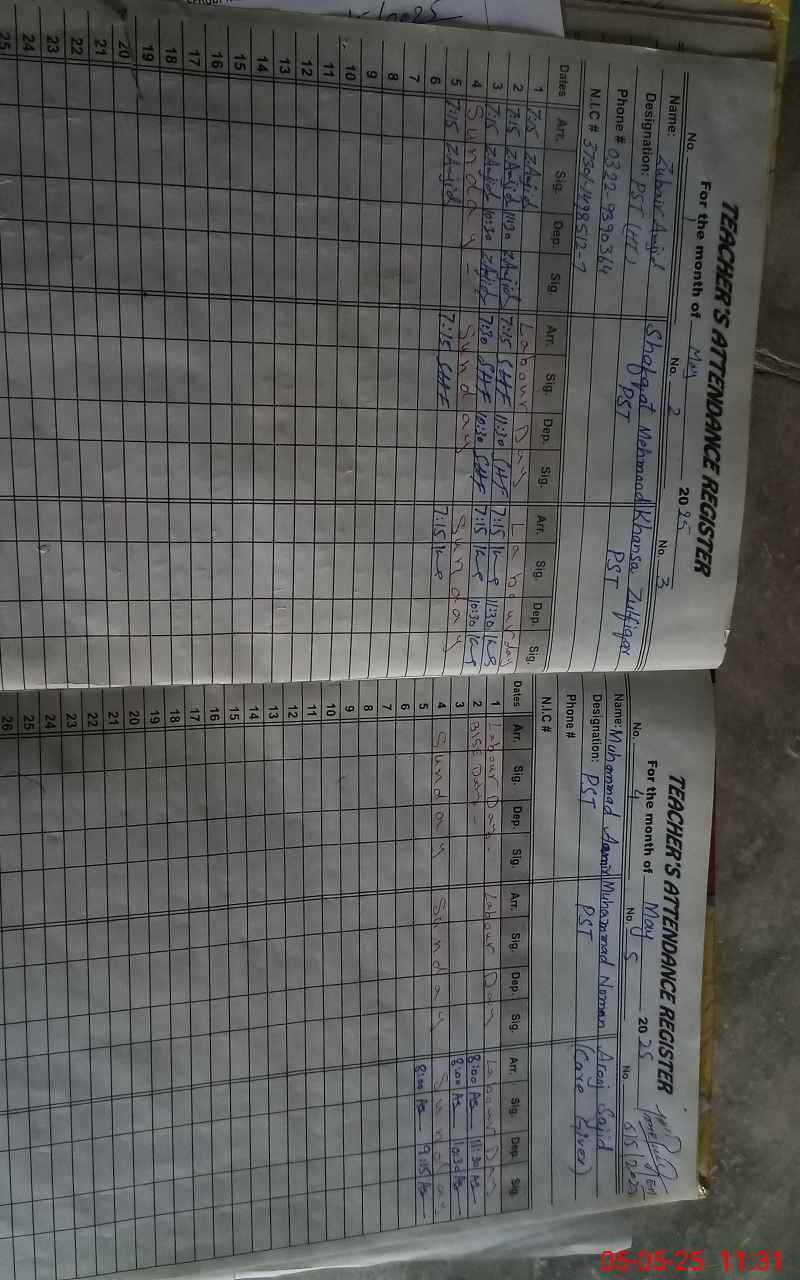 TEACHER'S ATTENDANCE REGISTER
For the month of May 2025
No. 1 No. 2 No. 3
Name: Zubair Amjid Shafqat Mehmood Khansa Zulfiqar
Designation: PST (HT) PST PST
Phone # 0322-9390364
N.I.C # 37301-1498512-7
Dates Arr. Sig. Dep. Sig. Arr. Sig. Dep. Sig. Arr. Sig. Dep. Sig.
1 7:15 ZAmjid Labour Day Labour day
2 7:15 ZAmjid 11:30 ZAmjid 7:15 SHF 11:30 SHF 7:15 11:30
3 7:15 ZAmjid 10:30 ZAmjid 7:30 SHF 10:30 SHF 7:15 10:30
4 Sunday - Sunday Sunday
5 7:15 ZAmjid 7:15 SHF 7:15
6
7
8
9
10
11
12
13
14
15
16
17
18
19
20
21
22
23
24
25
TEACHER'S ATTENDANCE REGISTER
For the month of May 2025
5/5/2025
No. 4 No. 5 No.
Name: Muhammad Aamir Muhammad Noman Arooj Sajid
Designation: PST PST (Care Giver)
Phone #
N.I.C #
Dates Arr. Sig. Dep. Sig. Arr. Sig. Dep. Sig. Arr. Sig. Dep. Sig.
1 Labour Day - Labour Day Labour Day
2 8:00 As 11:30 As
3 8:00 As 10:30 As
4 Sunday Sunday Sunday
5 8:00 As 9:15 As
6
7
8
9
10
11
12
13
14
15
16
17
18
19
20
21
22
23
24
25
26
05-05-25 11:31